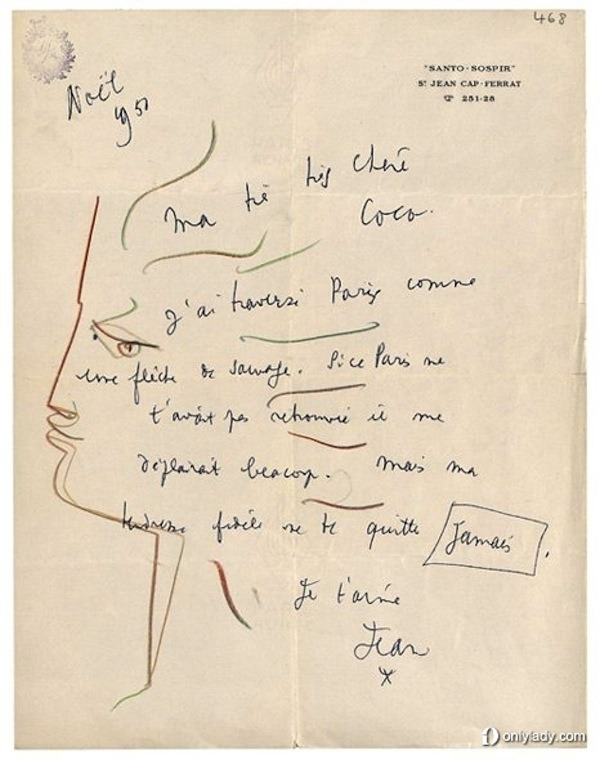 468
"SANTO-SOSPIR"
ST JEAN CAP-FERRAT
251-28
Noël
1950
ma très très chère
Coco.
J'ai traversé Paris comme
une flèche de sauvage. Si ce Paris ne
t'avait pas retrouvée il me
déplairait beaucoup. Mais ma
tendresse fidèle ne te quitte Jamais.
Je t'aime
Jean
onlylady.com